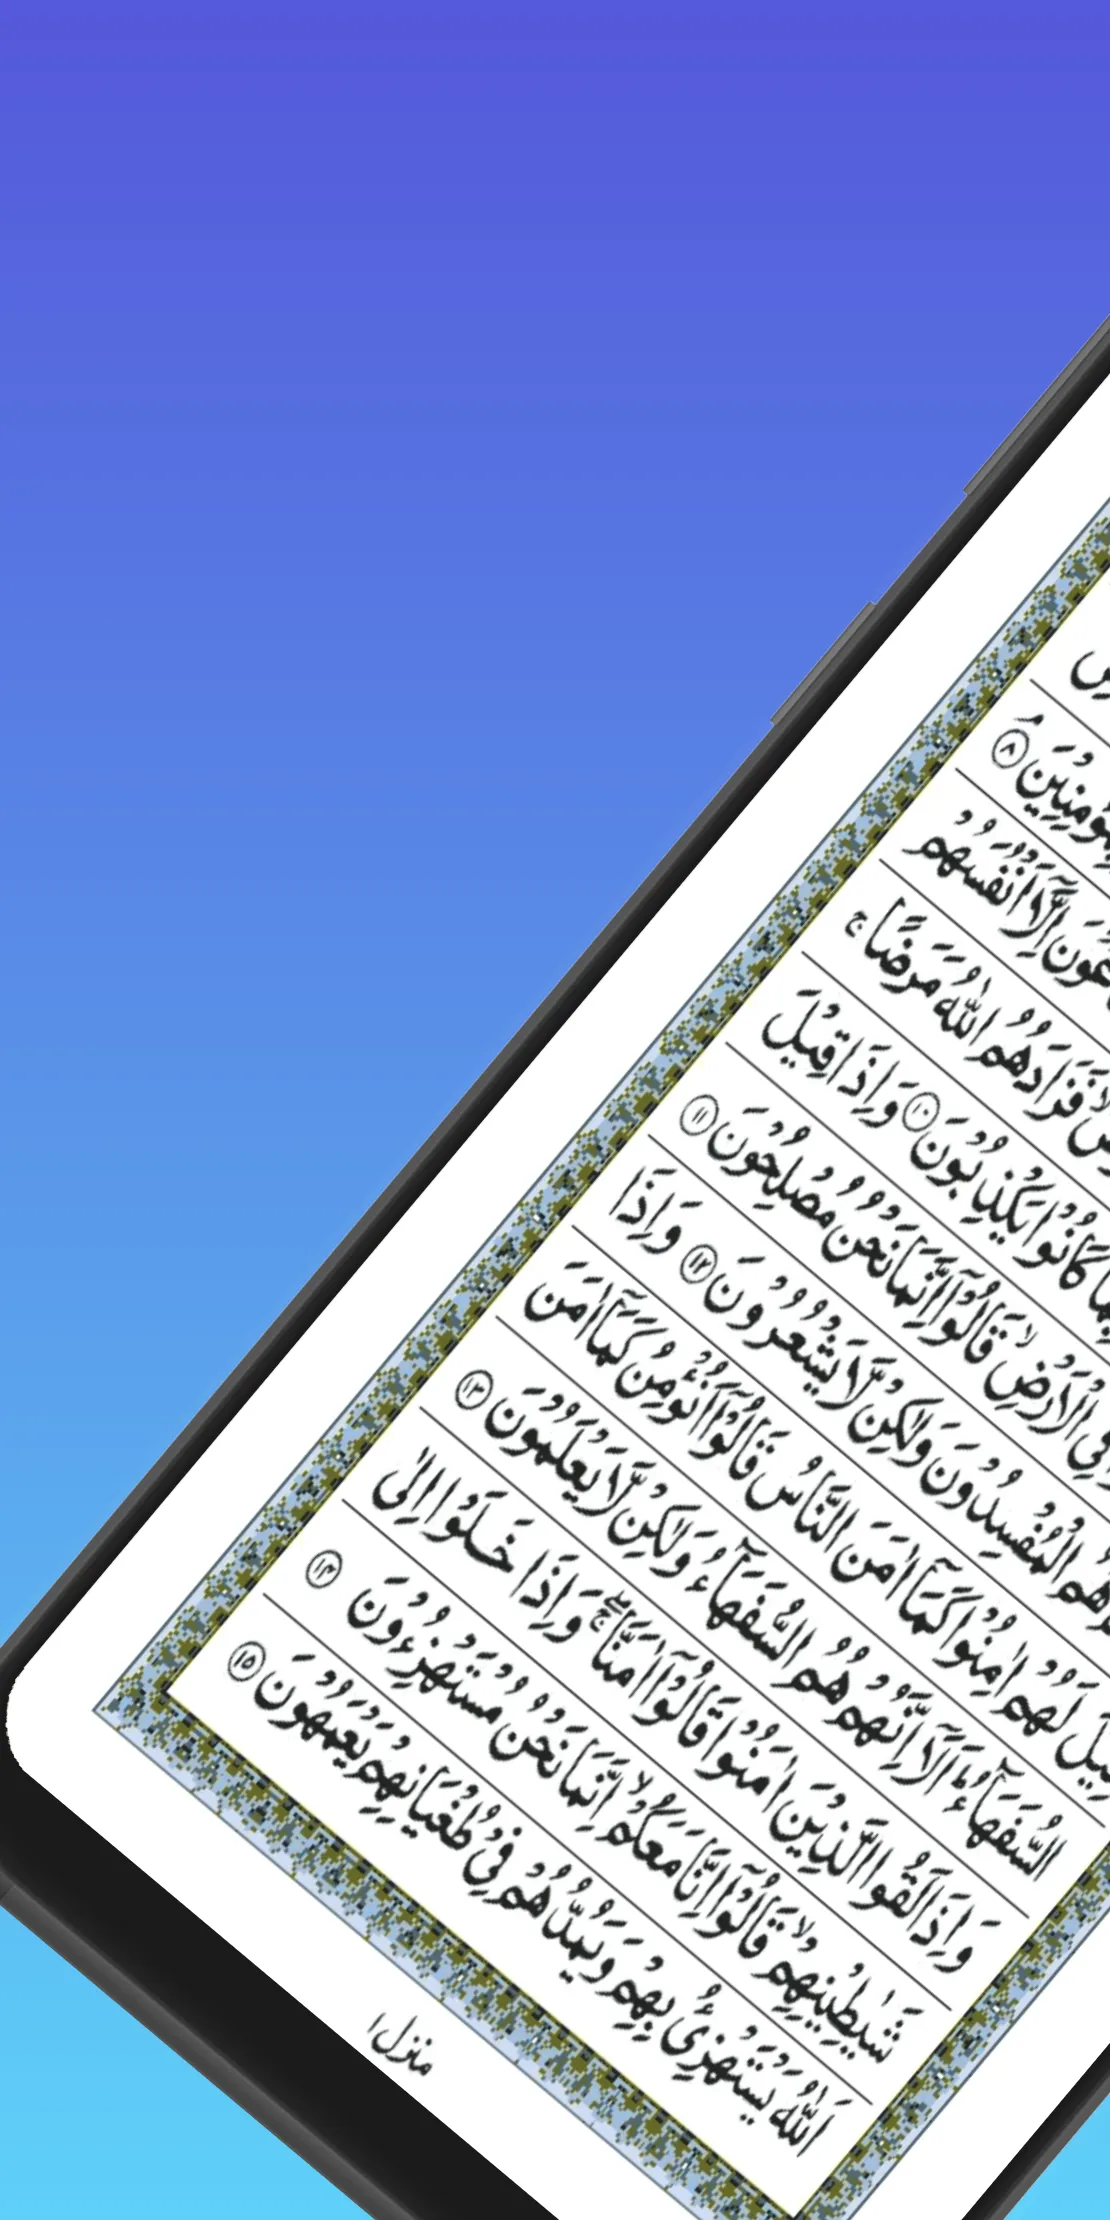 بِمُؤْمِنِيْنَ ۘ ﴿۸﴾
اِلَّاۤ اَنْفُسَهُمْ
فَزَادَهُمُ اللّٰهُ مَرَضًا ۚ
كَانُوْا يَكْذِبُوْنَ ﴿۱۰﴾ وَاِذَا قِيْلَ
فِى الْاَرْضِ ۙ قَالُوْۤا اِنَّمَا نَحْنُ مُصْلِحُوْنَ ﴿۱۱﴾
هُمُ الْمُفْسِدُوْنَ وَلٰكِنْ لَّا يَشْعُرُوْنَ ﴿۱۲﴾ وَاِذَا
قِيْلَ لَهُمْ اٰمِنُوْا كَمَاۤ اٰمَنَ النَّاسُ قَالُوْۤا اَنُؤْمِنُ كَمَاۤ اٰمَنَ
السُّفَهَآءُ ؕ اَلَاۤ اِنَّهُمْ هُمُ السُّفَهَآءُ وَلٰكِنْ لَّا يَعْلَمُوْنَ ﴿۱۳﴾
وَاِذَا لَقُوا الَّذِيْنَ اٰمَنُوْا قَالُوْۤا اٰمَنَّا ۖۚ وَاِذَا خَلَوْا اِلٰى
شَيٰطِيْنِهِمْ ۙ قَالُوْۤا اِنَّا مَعَكُمْ ۙ اِنَّمَا نَحْنُ مُسْتَهْزِءُوْنَ ﴿۱۴﴾
اَللّٰهُ يَسْتَهْزِئُ بِهِمْ وَيَمُدُّهُمْ فِىْ طُغْيَانِهِمْ يَعْمَهُوْنَ ﴿۱۵﴾
منزل۱